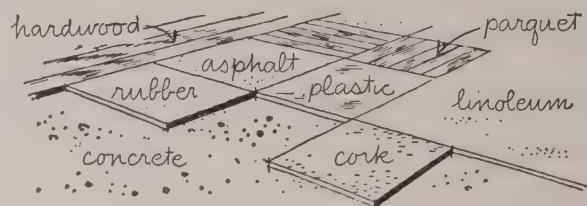 hardwood
parquet
asphalt
rubber
plastic
linoleum
concrete
cork